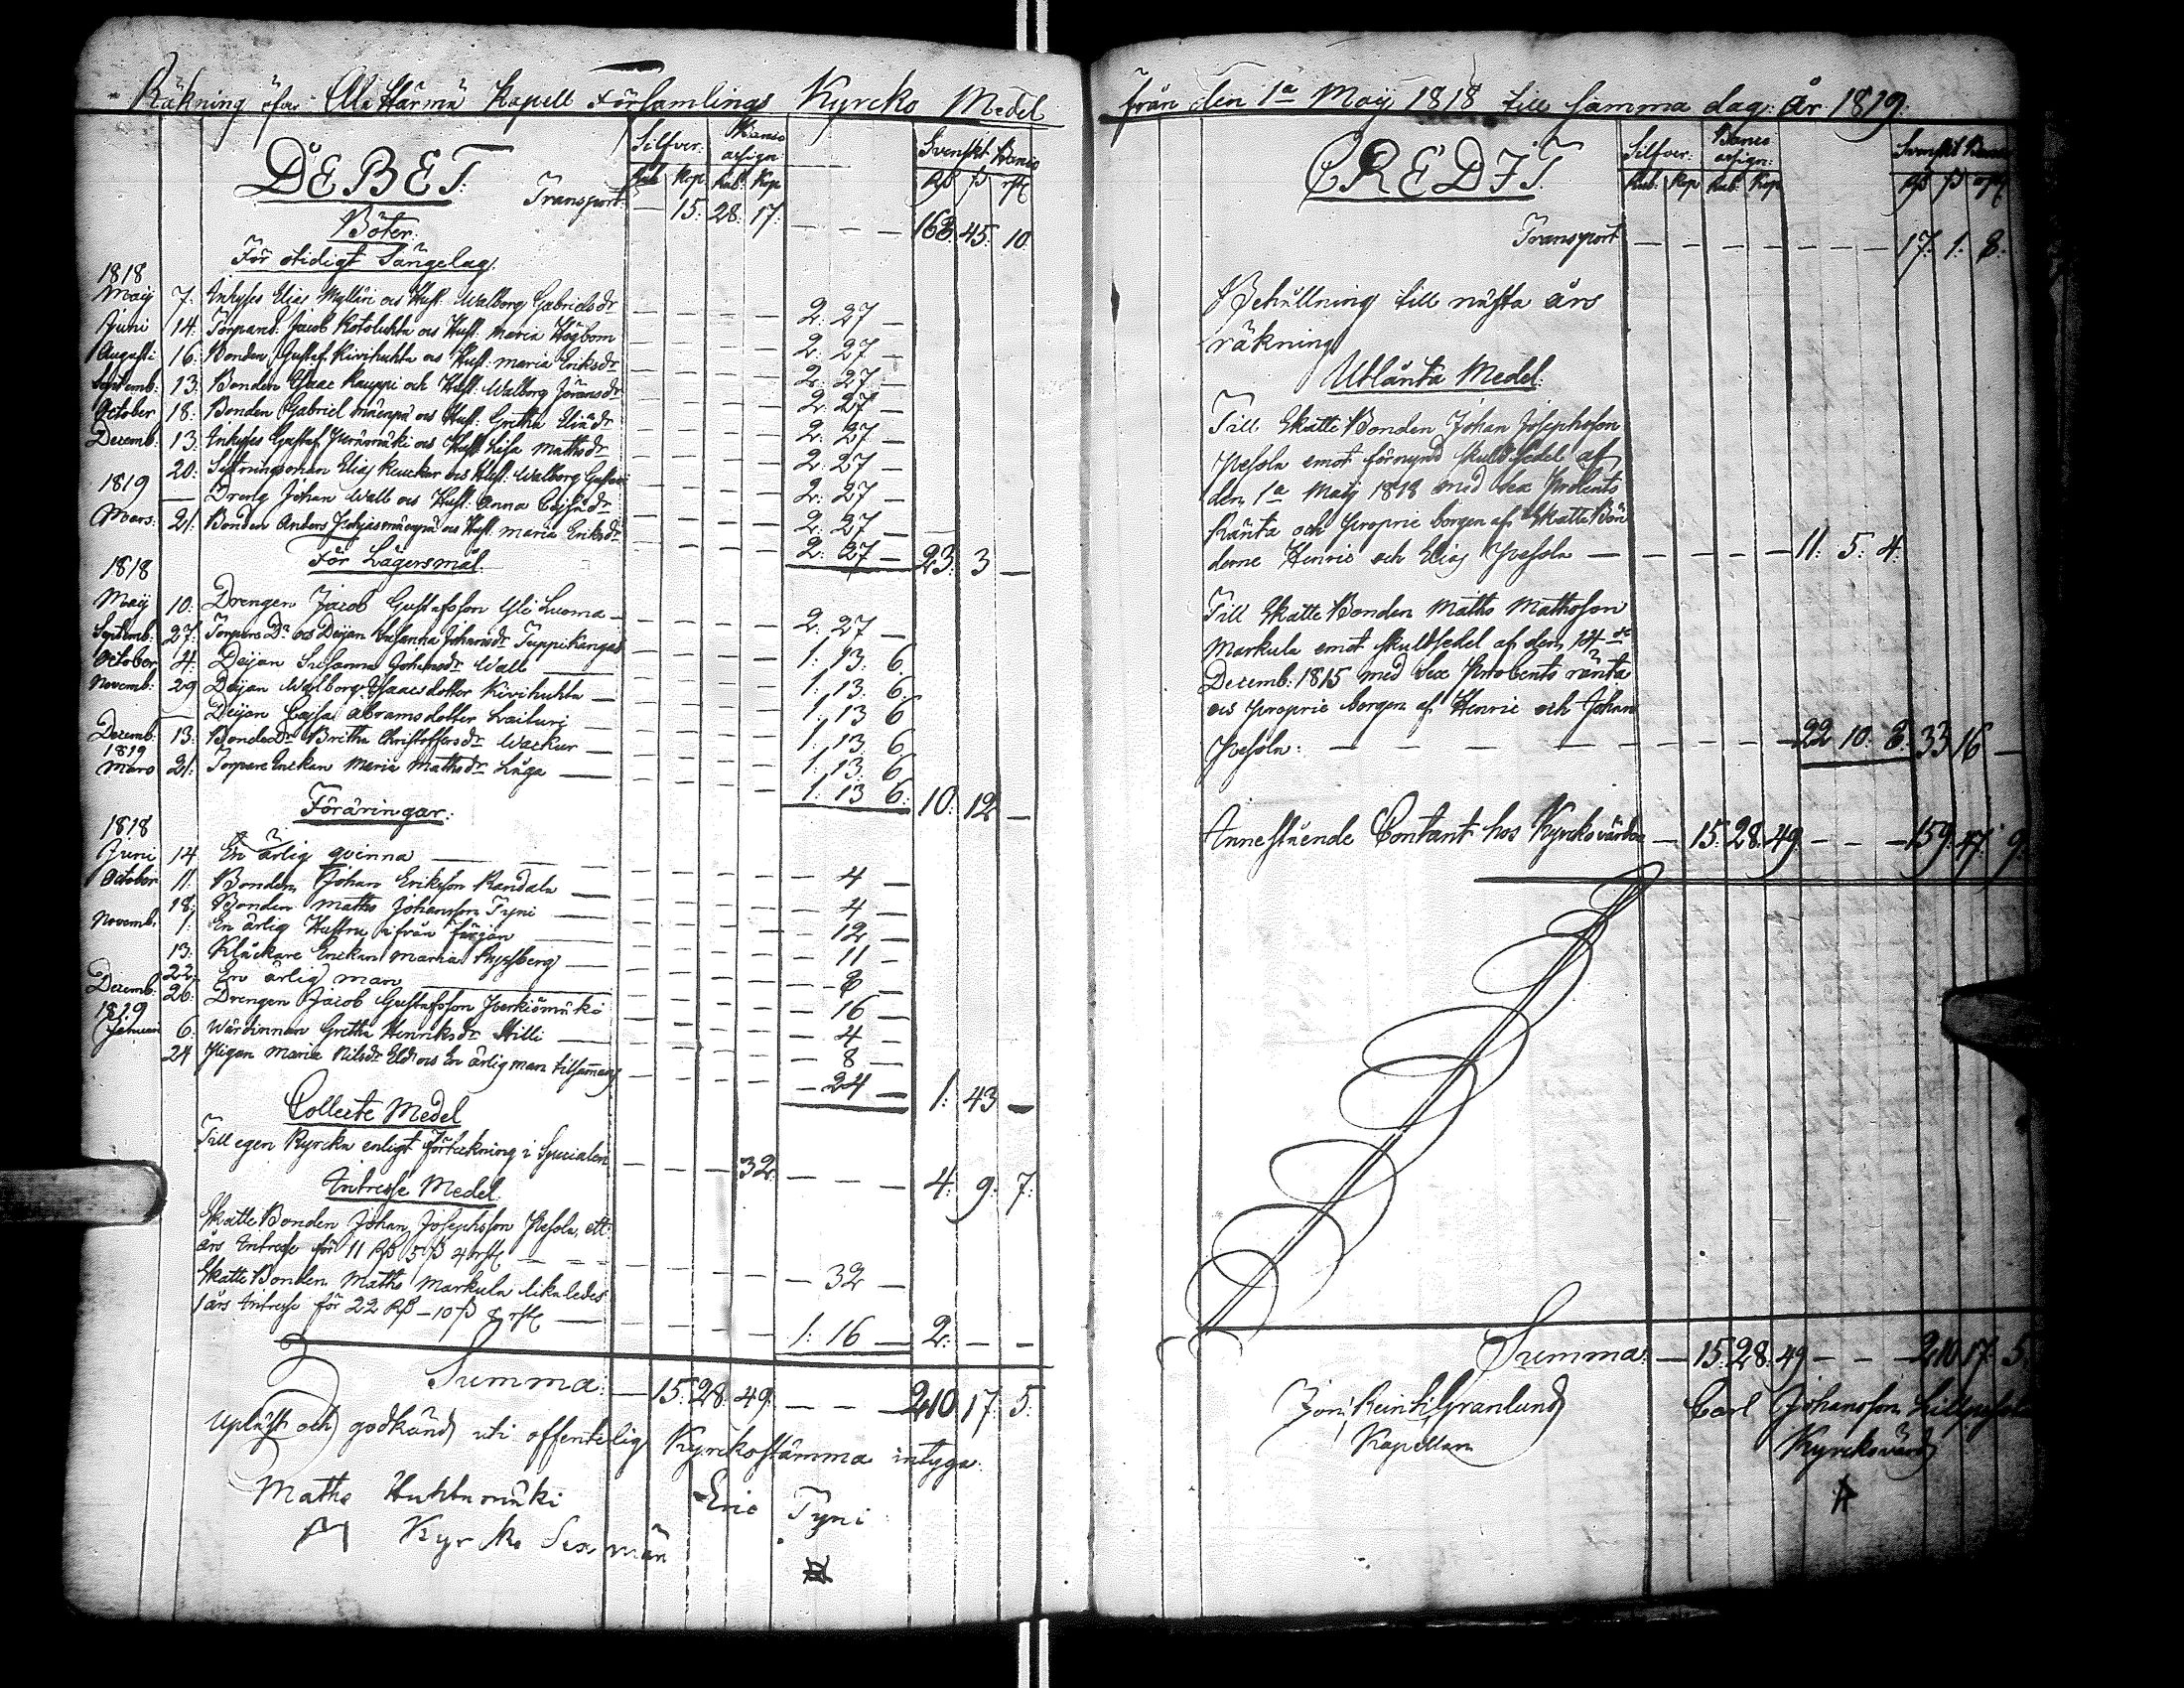 Räkning öfver Alla Härmä Kapell Församlings Kyrcko Medel
DEBET.
Silfver. Banco assign: Svenskt Banco
Rub. Kop. Rub. Kop. Rß ß rst
Transport: — 15. 28. 17. — — — 168. 45. 10.
Böter.
För otidigt Sängelag.
1818
Maij 7. Inhyses Elias Mylläri och Hust. Walborg Gabrielsdr — — — — 2. 27 —
Juni 14. Torpand: Jacob Kotoluhta och Hust. Maria Högbom — — — — 2. 27 —
Augusti 16. Bonden Gustaf Kivihuhta och Hust. Maria Eriksdr — — — — 2. 27 —
Septemb: 13. Bonden Isaac Kauppi och Hust. Walborg Göransdr — — — — 2. 27 —
October 18. Bonden Gabriel Mäenpä och Hust. Gretha Eliædr — — — — 2. 27 —
Decemb: 13. Inhyses Gustaf och Hust. Lisa Mathsdr — — — — 2. 27 —
20. Elias och Hust. Walborg — — — — 2. 27 —
1819 — Dreng Johan Wall och Hust. Anna Cajsa — — — — 2. 27 —
Mars. 21. Bonden Anders och Hust. Maria Eriksdr — — — — 2. 27 — 23. 3 —
För Lägersmål.
1818
Maij 10. Drengen Jacob Gustafsson Yli Luoma — — — — — 2. 27 —
Septemb: 27. Torpare Dr och Deijan Susanna Johansdr Tuppikangas — — — — 1. 13. 6
October 4. Deijan Susanna Johansdr Wall — — — — — 1. 13. 6.
Novemb: 29 Deijan Walborg Isaacsdotter Kivihuhta — — — — — 1. 13 6
— Deijan Cajsa Abramsdotter — — — — — 1. 13. 6
Decemb: 13. Bondedr Britha Christoffersdr Wackur — — — — — 1. 13. 6
1819
Mars 21. Torpare Enckan Maria Mathsdr Låga — — — — — 1. 13 6. 10. 12 —
Föräringar.
1818
Juni 14 En ärlig qvinna — — — — — — 4 —
October 11. Bonden Johan Eriksson Kandala — — — — — — 4 —
18. Bonden Maths Johansson Tyni — — — — — — 12 —
Novemb. 1. En ärlig Hustru ifrån färjan — — — — — — 11 —
13. Klåckare Enckan Maria — — — — — — 8 —
22. En ärlig man — — — — — — 16 —
Decemb. 26. Drengen Jacob Gustafsson — — — — — 4 —
1819
Januari 6. Wärdinnan Gretha Henriksdr Hilli — — — — — — 8 —
24 Pigan Maria Nilsdr och En ärlig man tilsammans — — — — — 24 — 1. 43 —
Collecte Medel
Till egen Kyrcka enligt förteckning i Specialen — — — 32. — — — 4. 9. 7.
Intresse Medel.
Skatte Bonden Johan Josephsson Pesola, ett
års Intresse för 11 Rß 5 ß 4 rst — — — — — 32 —
Skatte Bonden Maths Markula likaledes
1 års Intresse för 22 Rß — 10 ß 8 rst — — — — — 1. 16 — 2. — —
Summa: — 15. 28. 49. — — — 210. 17. 5.
Upläst och godkänd uti offentelig Kyrckostämma intyga.
Maths Huhtamäki
Eric Tyni
Kyrcko Sexmän
från den 1a Maij 1818 till samma dag år 1819.
CREDIT.
Silfver. Banco assign: Svenskt Banco
Rub. Kop Rub. Kop. Rß ß rst
Transport — — — — — — — 17. 1. 8.
Behållning till nästa års
räkning
Utlånta Medel.
Till Skatte Bonden Johan Josephsson
Pesola emot förnyad skuldsedel af
den 1a Maij 1818 med sex Procents
Ränta och proprie borgen af Skatte Bön
derne Henric och Elias Pesola — — — — — 11. 5. 4.
Till Skatte Bonden Maths Mathsson
Markula emot skuldsedel af den 14de
Decemb: 1815 med Sex Procents ränta
och proprie borgen af Henric och Johan
Pesola: — — — — — — — 22 10. 8. 33 16 —
Innestående Contant hos Kyrckovärden — 15. 28. 49. — — — 159. 47. 9.
Summa. — 15. 28. 49 — — — 210 17. 5.
Granlund
Kapellan
Carl Johansson
Kyrckovärd